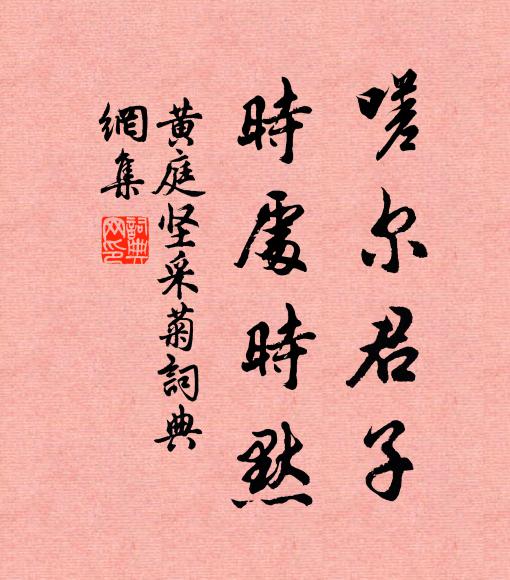 嗟尔君子
時處時默
黄庭坚采菊詞典
網集
詞典
网印